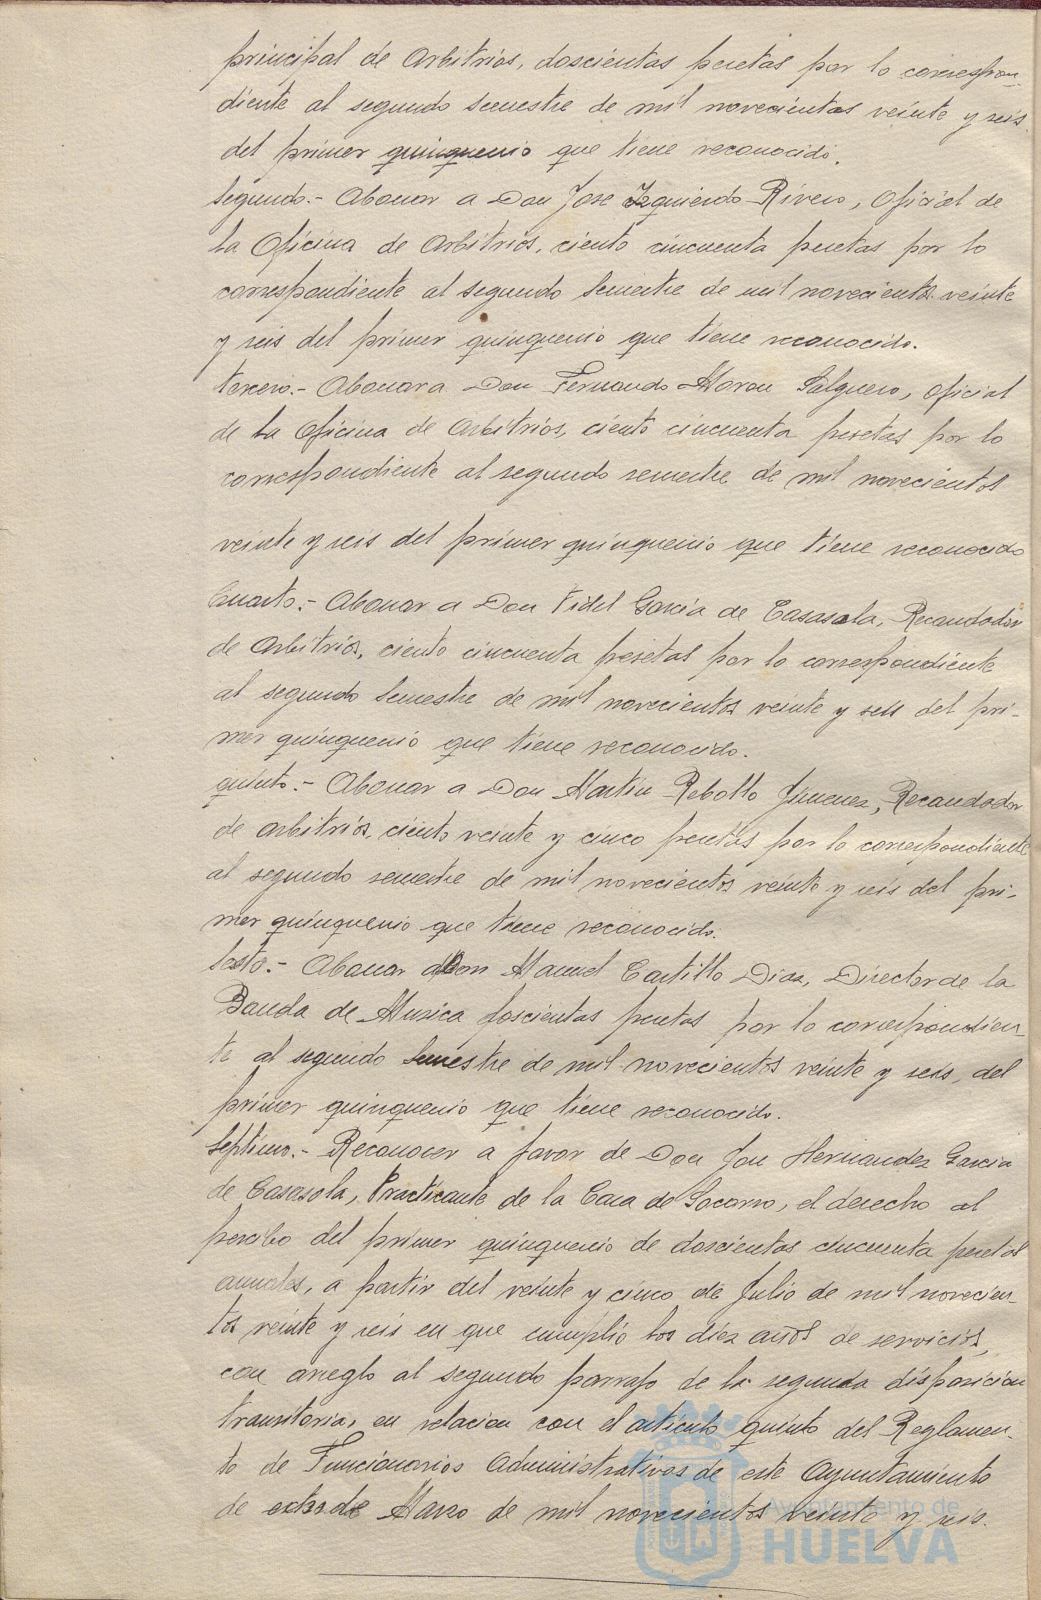 principal de Arbitrios, doscientas pesetas por lo correspon-
diente al segundo semestre de mil novecientos veinte y seis
del primer quinquenio que tiene reconocido.
Segundo.- Abonar a Don Jose Izquierdo Rivero, Oficial de
la Oficina de Arbitrios, ciento cincuenta pesetas por lo
correspondiente al segundo semestre de mil novecientos veinte
y seis del primer quinquenio que tiene reconocido.
tercero.- Abonar a Don Fernando Moron Salguero, Oficial
de la Oficina de Arbitrios, ciento cincuenta pesetas por lo
correspondiente al segundo semestre de mil novecientos
veinte y seis del primer quinquenio que tiene reconocido
Cuarto.- Abonar a Don Fidel Garcia de Casasola, Recaudador
de Arbitrios, ciento cincuenta pesetas por lo correspondiente
al segundo semestre de mil novecientos veinte y seis del pri-
mer quinquenio que tiene reconocido.
quinto.- Abonar a Don Martin Rebollo Jimenez, Recaudador
de arbitrios, ciento veinte y cinco pesetas por lo correspondiente
al segundo semestre de mil novecientos veinte y seis del pri-
mer quinquenio que tiene reconocido.
Sesto.- Abonar a Don Manuel Castillo Diaz, Director de la
Banda de Musica doscientas pesetas por lo correspondien-
te al segundo semestre de mil novecientos veinte y seis, del
primer quinquenio que tiene reconocido.
Septimo.- Reconocer a favor de Don Jose Hernandez Garcia
de Casasola, Practicante de la Casa de Socorro, el derecho al
percibo del primer quinquenio de doscientas cincuenta pesetas
anuales, a partir del veinte y cinco de Julio de mil novecien-
tos veinte y seis en que cumplió los diez años de servicios,
con arreglo al segundo parrafo de la segunda disposicion
transitoria, en relacion con el articulo quinto del Reglamen-
to de Funcionarios Administrativos de este Ayuntamiento
de Marzo de mil novecientos veinte y seis.
Ayuntamiento de
HUELVA